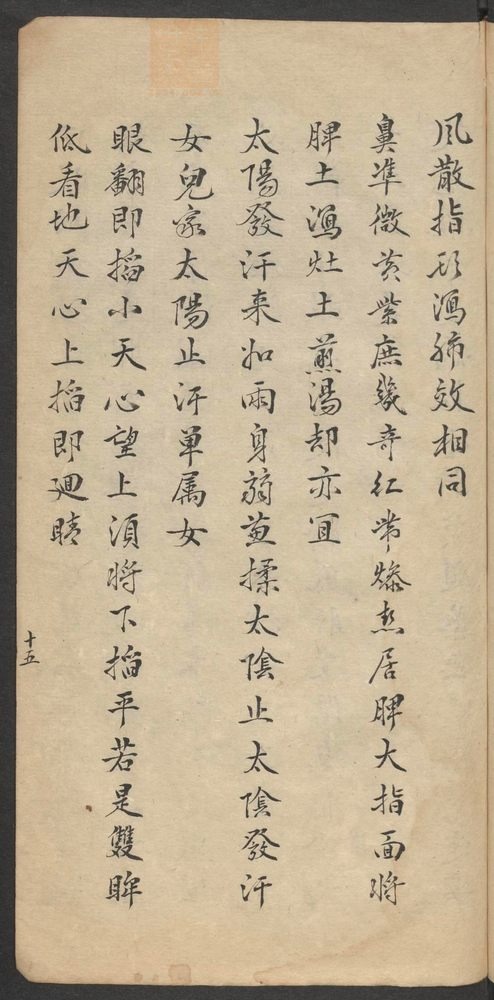 風散指頂瀉肺效相同
鼻準微黄紫庶幾奇紅帶燥热居脾大指面將
脾土瀉灶土煎湯却亦宜
太陽發汗来如雨身弱兼揉太陰止太陰發汗
女兒家太陽止汗单属女
眼翻即掐小天心望上須將下掐平若是雙眸
低看地天心上掐即廻睛
十五